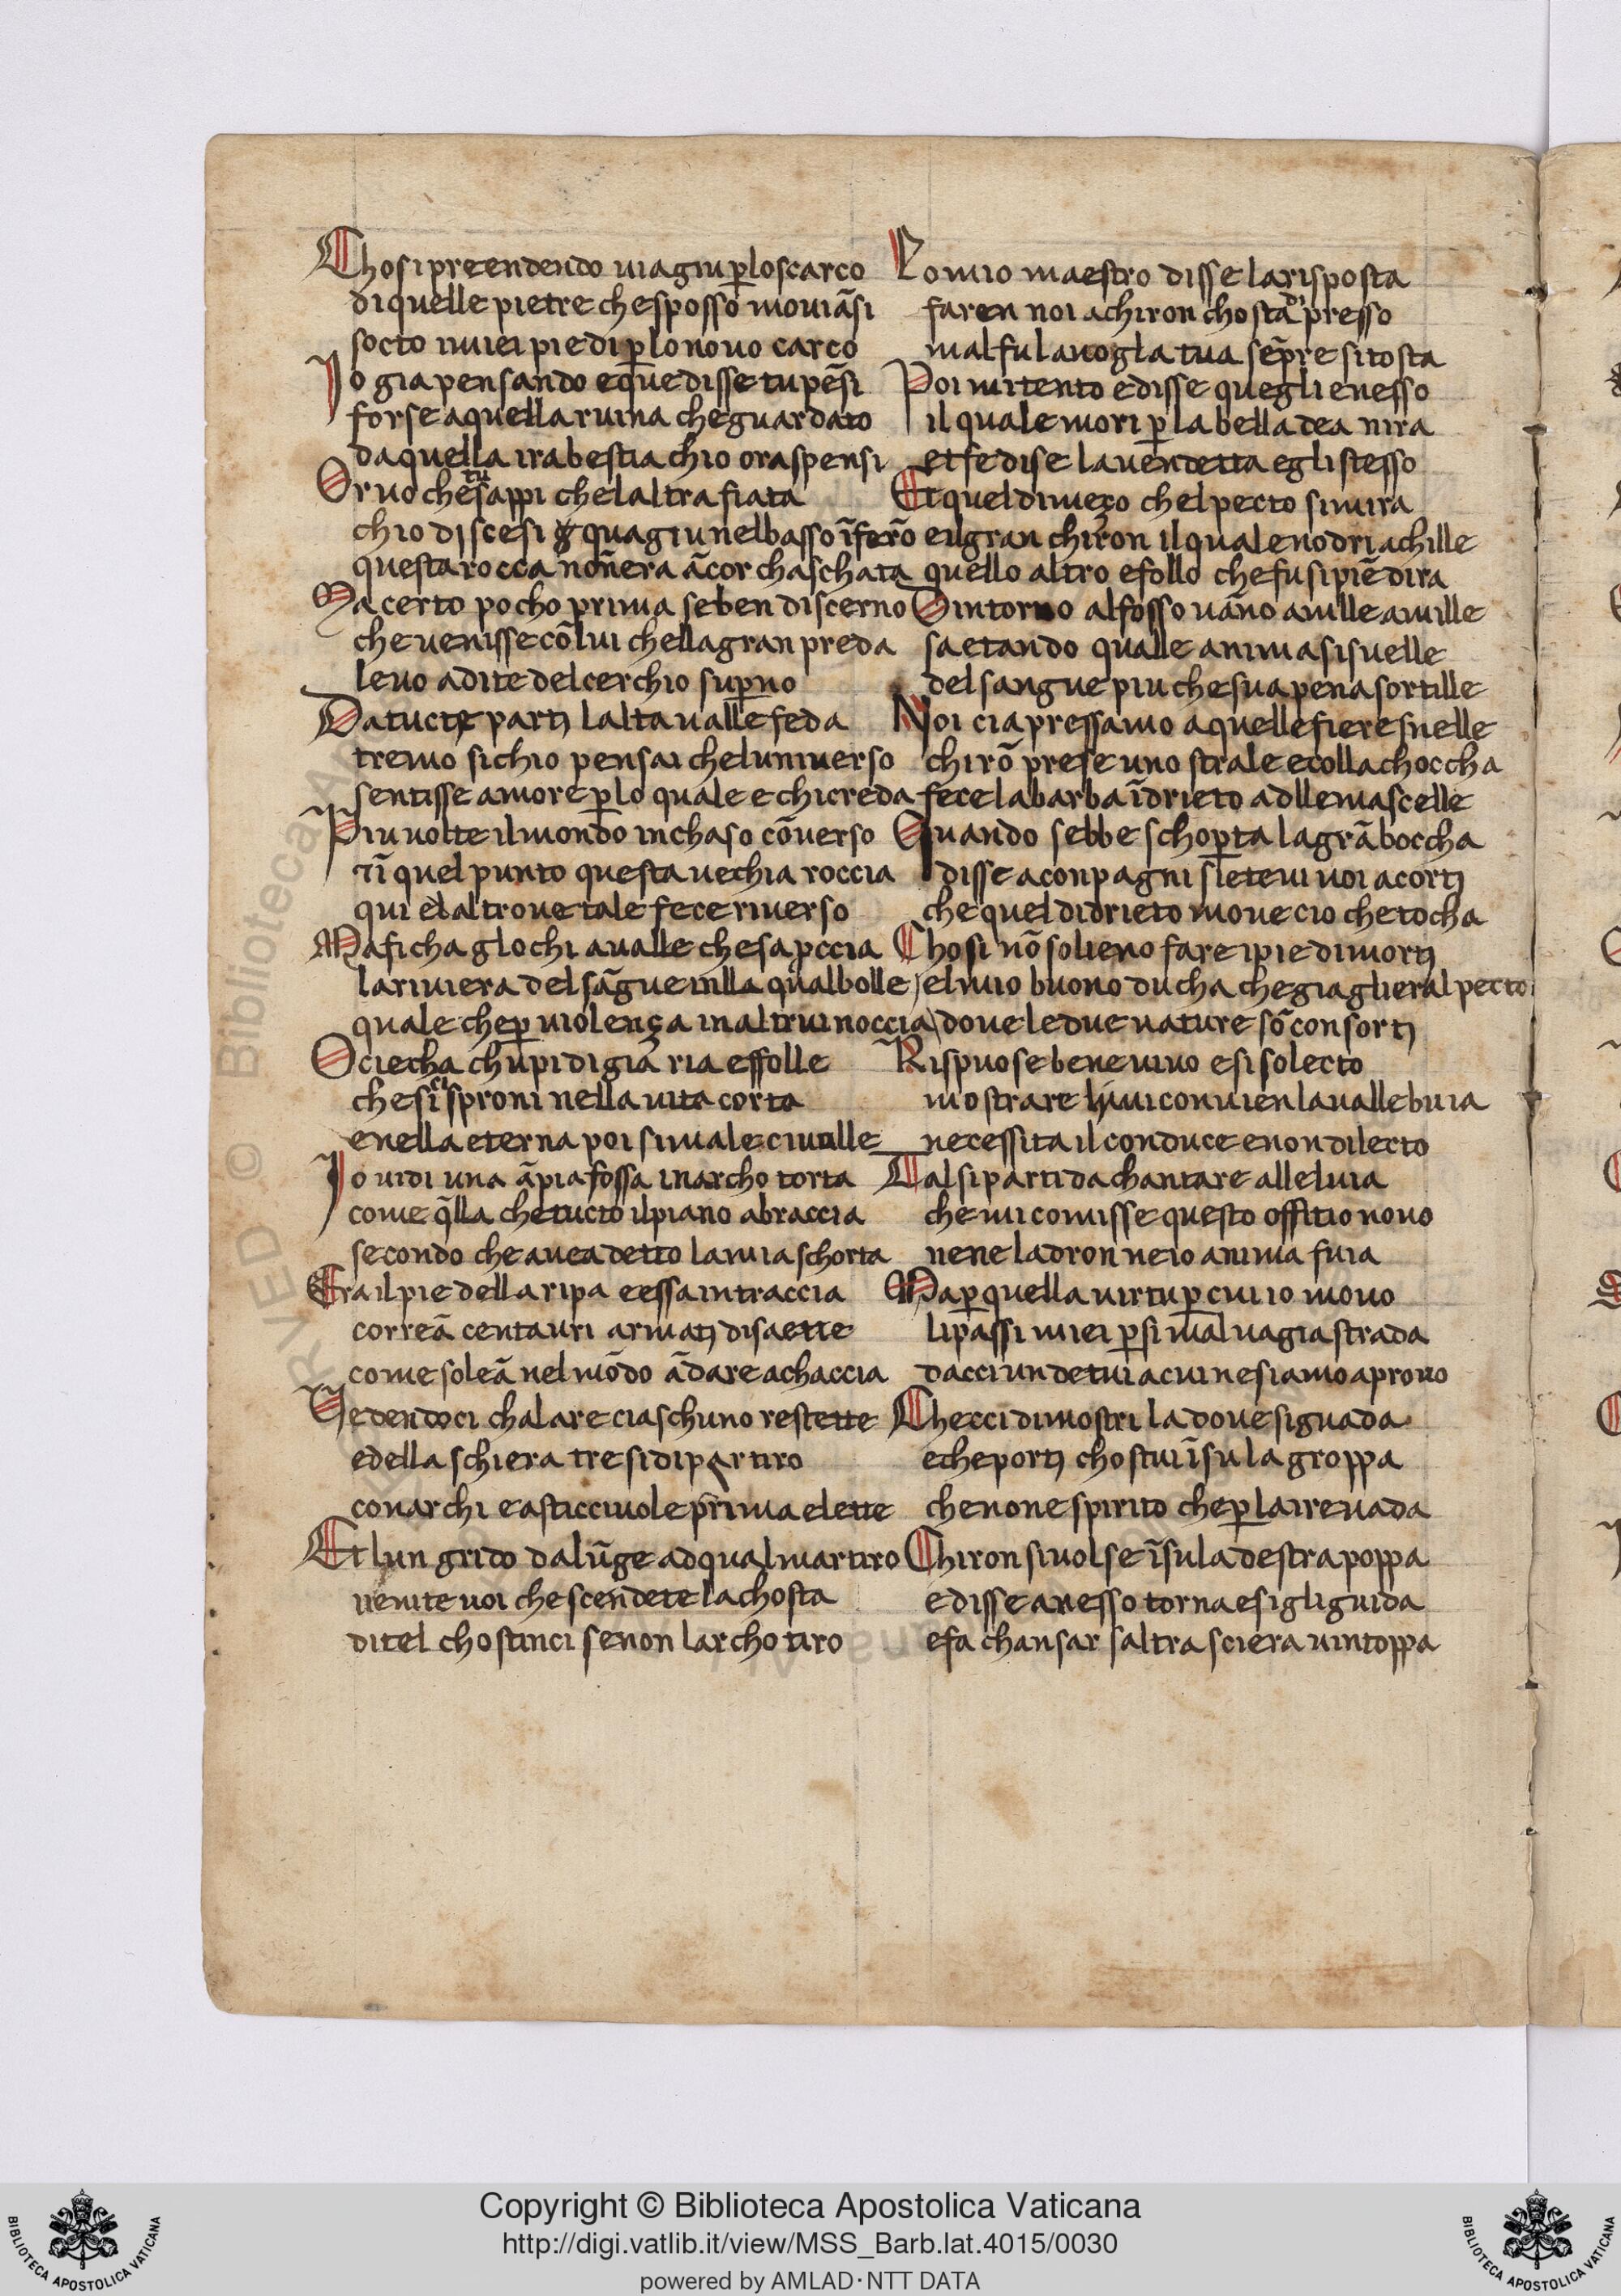 Chosi preendendo uia giu ꝑ loscarco
di quelle pietre chesposso mouiãsi
socto imiei piedi ꝑ lo nouo carco
Io gia pensando eque disse tu pẽsi
forse a quella ruina che guardato
da quella ira bestia chio ora spensi
Or uo che tu sappi che laltra fiata
chio discesi quagiu nel basso ĩferõ
questa rocca noñ era ãcor chaschata
Ma certo pocho prima se ben discerno
che uenisse cõ lui chella gran preda
leuo a dite del cerchio suꝑno
Da tucte parti lalta ualle feda
tremo si chio pensai cheluniuerso
sentisse amore ꝑ lo quale e chi creda
Piu uolte il mondo in chaso cõuerso
⁊ ĩ quel punto questa uechia roccia
qui e altroue tale fece riuerso
Ma ficha glochi aualle che sa ꝓccia
la riuiera del sãgue inlla qual bolle
quale cheꝑ uiolença in altrui noccia
O ciecha chupidigia ria effolle
che si ci sproni nella uita corta
e nella eterna poi si male ci molle
Io uidi una ãpia fossa in archo torta
come q̃lla che tucto il piano abraccia
secondo che auea detto la mia schorta
Era il pie della ripa e essa in traccia
correã centauri armati di saette
come soleã nel mõdo ãdare a chaccia
Vedendoci chalare ciaschuno restette
e della schiera tre si dipartiro
con archi e asticciuole prima elette
Et lun grido da lũge ad qual martiro
uenite uoi che scendete la chosta
ditel chostinci se non larcho tiro
Lo mio maestro disse la risposta
faren noi a chiron chosta di presso
mal fu la uogla tua sẽpre si tosta
Poi mi tento e disse quegli e nesso
il quale mori ꝑ la bella deanira
et fe di se la uendetta egli stesso
Et quel di meço chel pecto si mira
e il gran chiron il quale nodri achille
quello altro e follo che fu si piẽ dira
Dintorno al fosso uãno a mille a mille
saetando qualle anima si suelle
del sangue piu che sua pena sortille
Noi ci apressamo a quelle fiere snelle
chirõ prese uno strale e colla choccha
fece la barba ĩdrieto adlle mascelle
Quando sebbe schoꝑta la grã boccha
disse a conpagni siete ui uoi acorti
che quel didrieto moue cio che tocha
Chosi nõ solieno fare i piedi morti
el mio buono ducha che gia glieral pecto
doue le due nature sõ consorti
Rispuose bene uiuo e si solecto
mostrare li mi conuien la ualle buia
necessita il conduce e non dilecto
Tal si parti da chantare alleluia
che mi comisse questo offitio nouo
ne ne ladron ne io anima fuia
Ma ꝑ quella uirtu ꝑ cui io mouo
li passi miei ꝑ si maluagia strada
dacci un de tui a cui ne siamo a prouo
Checci dimostri la doue si guada
e che porti chostui ĩsu la groppa
che non e spirito che ꝑ laire uada
Chiron si uolse ĩsu la destra poppa
e disse a nesso torna e si gli guida
e fa chansar saltra sciera uintoppa
Copyright © Biblioteca Apostolica Vaticana
http://digi.vatlib.it/view/MSS_Barb.lat.4015/0030
powered by AMLAD·NTT DATA
BIBLIOTECA APOSTOLICA VATICANA
BIBLIOTECA APOSTOLICA VATICANA